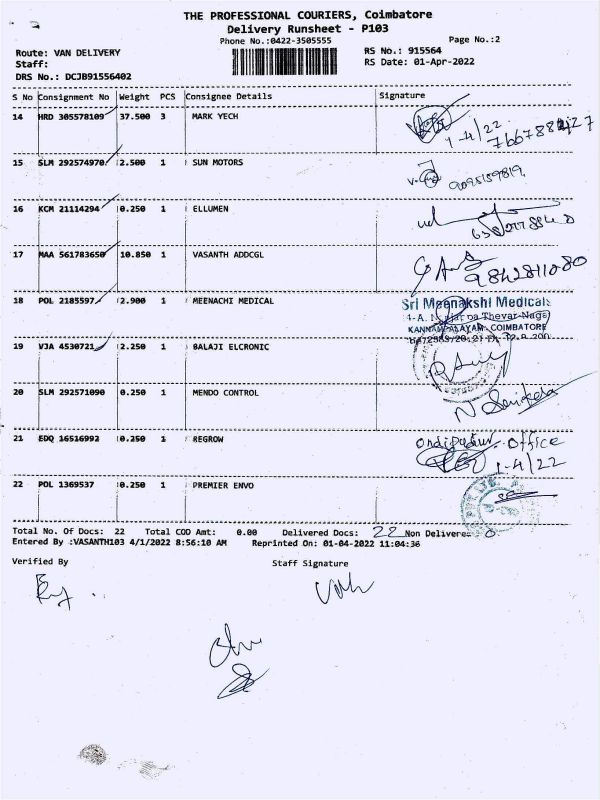 THE PROFESSIONAL COURIERS, Coimbatore
Delivery Runsheet - P103
Phone No.:0422-3505555
Page No.:2
Route: VAN DELIVERY
RS No.: 915564
Staff:
RS Date: 01-Apr-2022
DRS No.: DCJB91556402
S No Consignment No Weight PCS Consignee Details Signature
14 HRD 305578109 37.500 3 MARK YECH
1-4/22
15 SLM 292574970 2.500 1 SUN MOTORS
9095159819
16 KCM 21114294 0.250 1 ELLUMEN
17 MAA 561783650 10.850 1 VASANTH ADDCGL
9842811080
18 POL 2185597 2.900 1 MEENACHI MEDICAL
Sri Meenakshi Medicals
Thevar Nagar
KANNAMPALAYAM, COIMBATORE
19 VJA 4530721 2.250 1 BALAJI ELCRONIC
20 SLM 292571090 0.250 1 MENDO CONTROL
21 EDQ 16516992 0.250 1 REGROW
Ondipudur Office
1-4/22
22 POL 1369537 0.250 1 PREMIER ENVO
Total No. Of Docs: 22 Total COD Amt: 0.00 Delivered Docs: 22 Non Delivered 0
Entered By :VASANTH103 4/1/2022 8:56:10 AM Reprinted On: 01-04-2022 11:04:36
Verified By
Staff Signature